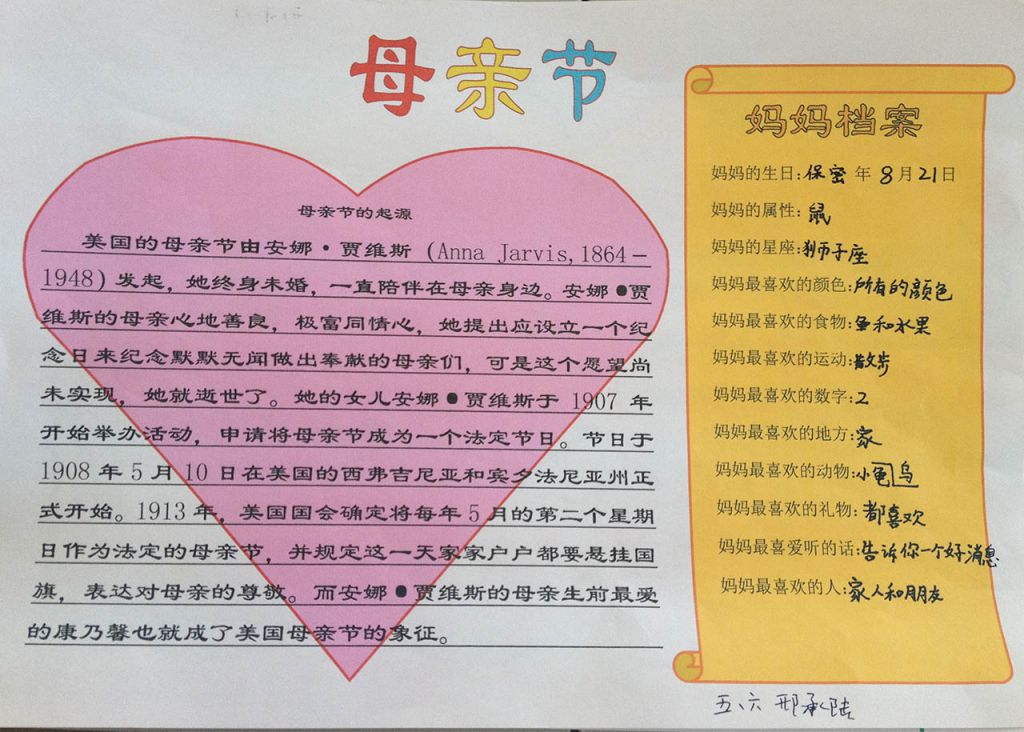 母亲节
母亲节的起源
美国的母亲节由安娜·贾维斯（Anna Jarvis,1864－
1948）发起，她终身未婚，一直陪伴在母亲身边。安娜●贾
维斯的母亲心地善良，极富同情心，她提出应设立一个纪
念日来纪念默默无闻做出奉献的母亲们，可是这个愿望尚
未实现，她就逝世了。她的女儿安娜●贾维斯于 1907 年
开始举办活动，申请将母亲节成为一个法定节日。节日于
1908 年 5 月 10 日在美国的西弗吉尼亚和宾夕法尼亚州正
式开始。1913 年，美国国会确定将每年 5 月的第二个星期
日作为法定的母亲节，并规定这一天家家户户都要悬挂国
旗，表达对母亲的尊敬。而安娜●贾维斯的母亲生前最爱
的康乃馨也就成了美国母亲节的象征。
妈妈档案
妈妈的生日:保密 年 8月21日
妈妈的属性:鼠
妈妈的星座:狮子座
妈妈最喜欢的颜色:所有的颜色
妈妈最喜欢的食物:鱼和水果
妈妈最喜欢的运动:散步
妈妈最喜欢的数字:2
妈妈最喜欢的地方:家
妈妈最喜欢的动物:小龟鸟
妈妈最喜欢的礼物:都喜欢
妈妈最喜爱听的话:告诉你一个好消息
妈妈最喜欢的人:家人和朋友
五、六 邢承陆